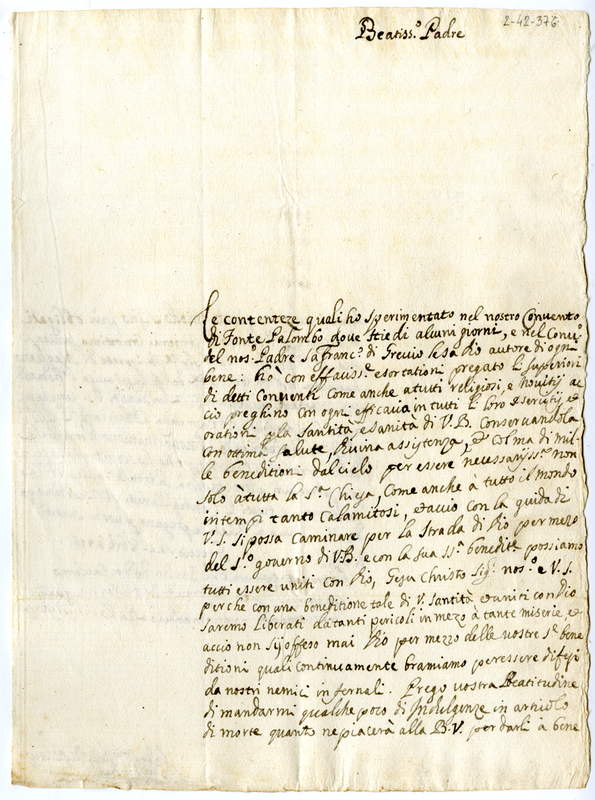 2-42-376
Beatiss.o Padre
Le contenteze quali ho sperimentato nel nostro Convento
di Fonte Palombo doue stiedi alcuni giorni, e nel Conu.o
del nos.o Padre S. franc.o di Greuio lo sa Dio autore di ogni
bene: hò con efficaciss.e esortationi pregato li superiori
di detti Conventi come anche a tutti religiosi, e nouitij ac
ciò preghino con ogni efficacia in tutti li loro esercitij, et
orationi p la santità, e sanità di V.B. conseruandola
con ottima salute, Diuina assistenza, et colma di mil
le beneditioni dal cielo per essere necessarijss.e non
solo à tutta la S.ta Chiesa, come anche a tutto il mondo
in tempi tanto calamitosi, et accio con la guida di
V.S. si possa caminare per la strada di Dio per mezo
del S.o gouerno di V.B. e con la sua ss.a benedit.e possiamo
tutti essere uniti con Dio, Giesu Christo Sig.r nos.o e V.S.
perche con una beneditione tale di V. Santità et uniti con Dio
saremo liberati da tanti pericoli in mezo à tante miserie, et
accio non sij offeso mai Dio per mezo delle vostre S.e bene
ditioni quali continuamente bramiamo per essere difesi
da nostri nemici infernali. Prego vostra Beatitudine
di mandarmi qualche poco di Indulgenze in articolo
di morte quanto ne piacerà alla B.V. per darli à bene